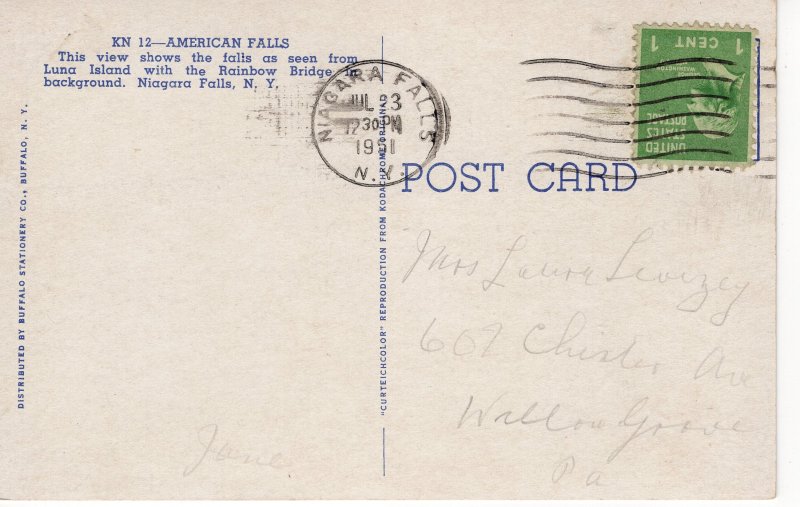 KN 12—AMERICAN FALLS
This view shows the falls as seen from
Luna Island with the Rainbow Bridge in
background. Niagara Falls, N. Y.
DISTRIBUTED BY BUFFALO STATIONERY CO., BUFFALO, N. Y.
"CURTEICHCOLOR" REPRODUCTION FROM KODACHROME ORIGINAL
NIAGARA FALLS
JUL 3
12 30 PM
1951
N.Y.
1 CENT 1
WASHINGTON
UNITED
STATES
POSTAGE
POST CARD
Mrs Laura
607 Chester Ave
Willow Grove
Pa
Jane